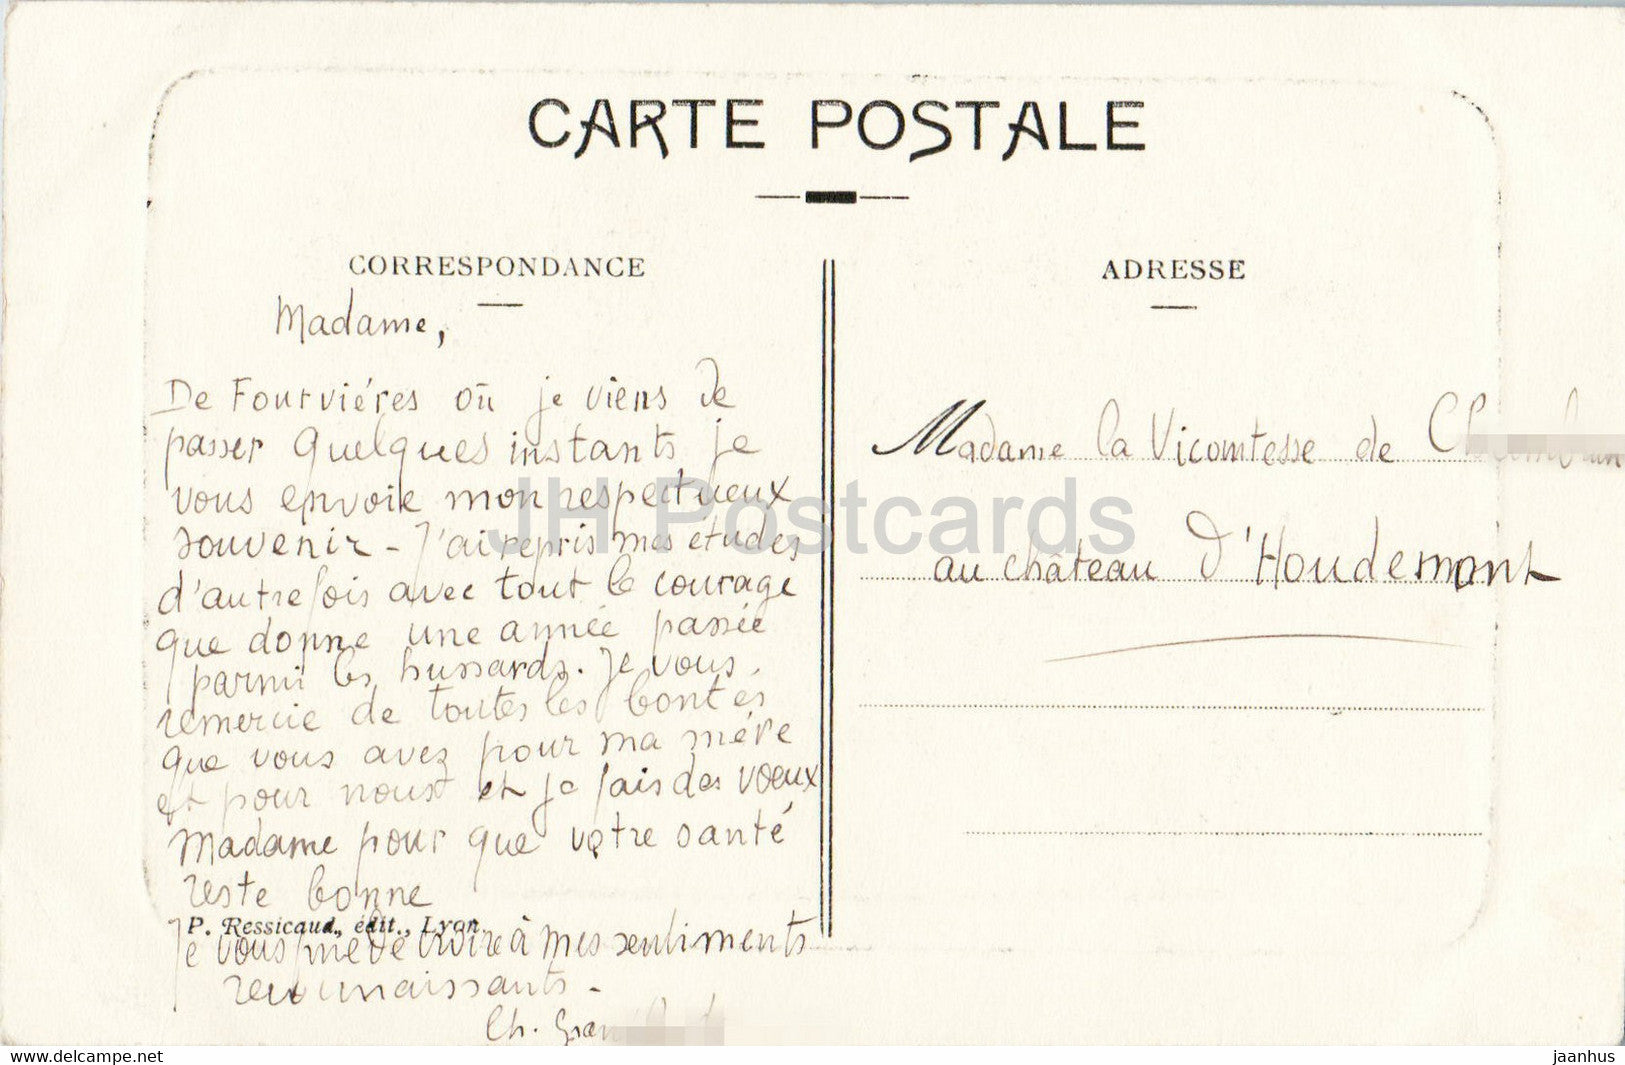 CARTE POSTALE
CORRESPONDANCE
Madame,
De Fourviéres où je viens de
passer quelques instants je
vous envoie mon respectueux
souvenir - J'ai repris mes études
d'autrefois avec tout le courage
que donne une année passée
parmi les hussards. Je vous
remercie de toutes les bontés
que vous avez pour ma mére
et pour nous et je fais des voeux
Madame pour que votre santé
reste bonne
P. Ressicaud, édit., Lyon.
Je vous prie de croire à mes sentiments
reconnaissants -
Ch.
ADRESSE
Madame la Vicomtesse de
au château d'Houdemont
JH Postcards
www.delcampe.net
jaanhus